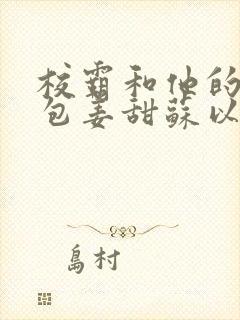 校霸和他的
包姜甜蘇以
島村